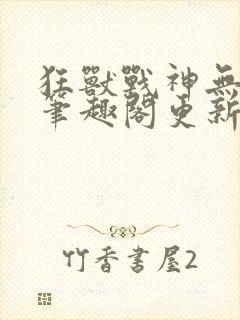 狂獸戰神無
筆趣閣更新
竹香書屋2